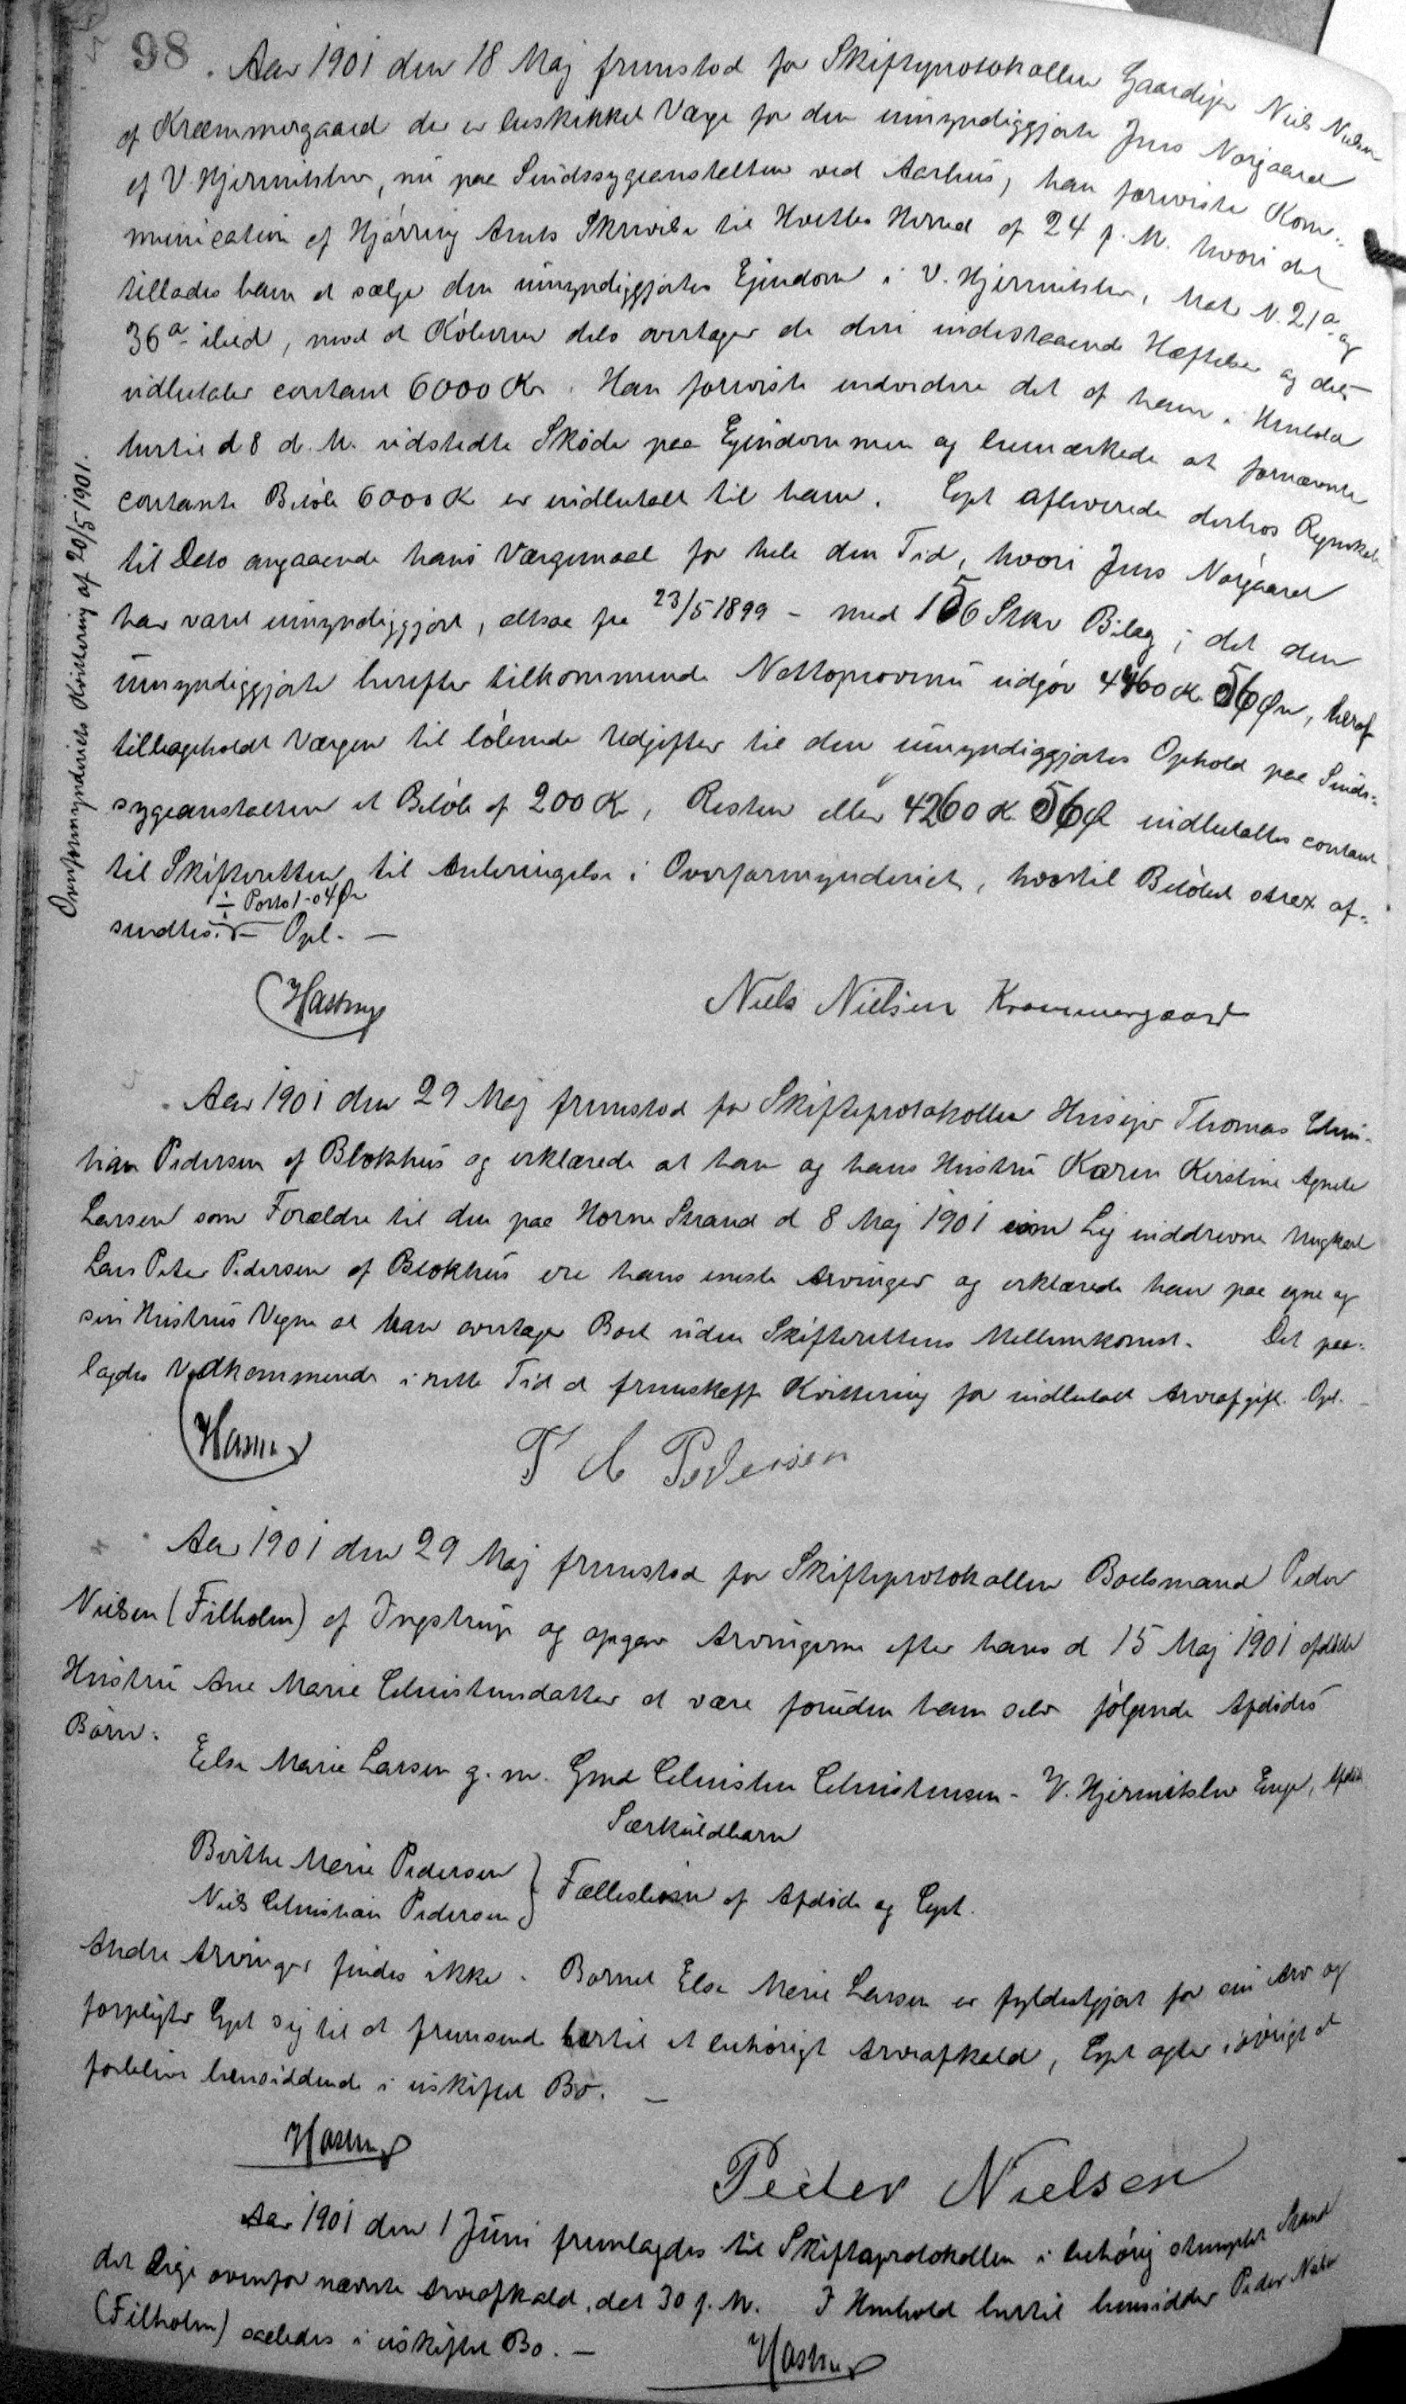 98
Aar 1901 den 18 Maj fremstod for Skifteprotokollen Gaardejer Niels Nielsen
af Kræmmergaard der er beskikket Værge for den umyndiggjorte Jens Nørgaard
af V. Hjermitslev, nu paa Sindssygeanstalten ved Aarhus, han foreviste Kom-
munication af Hjørring Amts Skrivelse til Hvetbo Herred af 24 f. M. hvori det
tillades ham at sælge den umyndiggjortes Ejendom i V. Hjermitslev, Matr N. 21a og
36a ibid, mod at Køberen dels overtager de deri indestaaende Hæftelser og dels
udbetaler contant 6000 Kr. Han foreviste endvidere det af ham i Henhold
hertil d 8 d. M. udstedte Skøde paa Ejendommen og bemærkede at fornævnte
contante Beløb 6000 Kr er indbetalt til ham. Cpt afleverede derhos Regnskab
til Dato angaaende hans Værgemaal for hele den Tid, hvori Jens Nørgaard
har været umyndiggjort, altsaa fra 23/5 1899 - med 156 Stkr Bilag; det den
umyndiggjorte herefter tilkommende Nettoprovenu udgør 4460 Kr 56 Øre, heraf
tilbageholdt Værgen til løbende Udgifter til den umyndiggjortes Ophold paa Sinds-
sygeanstalten et Beløb af 200 Kr, Resten eller 4260 Kr 56 Ø indbetaltes contant
til Skifteretten til Anbringelse i Overformynderiet, hvortil Beløbet strax af-
÷ Porto 1-04 Øre
sendtes. - Opl. -
Overformynderiets Kvittering af 20/5 1901.
Hastrup
Niels Nielsen Kræmmergaard
Aar 1901 den 29 Maj fremstod for Skifteprotokollen Husejer Thomas Chri-
stian Pedersen af Blokhus og erklærede at han og hans Hustru Karen Kirstine Agnete
Larsen som Forældre til den paa Horne Strand d 8 Maj 1901 som Lig inddrevne Ungkarl
Lars Peter Pedersen af Blokhus ere hans eneste Arvinger og erklærede han paa egne og
sin Hustrus Vegne at han overtager Boet uden Skifterettens Mellemkomst. Det paa-
lagdes Vedkommende i rette Tid at fremskaffe Kvittering for indbetalt Arveafgift. Opl.
Hastrup
T C Pedersen
Aar 1901 den 29 Maj fremstod for Skifteprotokollen Boelsmand Peder
Nielsen (Filholm) af Ingstrup og opgav Arvingerne efter hans d 15 Maj 1901 afdøde
Hustru Ane Marie Christensdatter at være foruden ham selv følgende Afdødes
Børn:
Else Marie Larsen g. m. Gmd Christen Christensen - V. Hjermitslev Enge, Afdødes
Særkuldbarn
Birthe Marie Pedersen
Niels Christian Pedersen } Fællesbørn af Afdøde og Cpt.
Andre Arvinger findes ikke. Barnet Else Marie Larsen er fyldestgjort for sin Arv og
forpligter Cpt sig til at fremsende hertil et behørigt Arveafkald, Cpt agter iøvrigt at
forblive hensiddende i uskiftet Bo. -
Hastrup
Peder Nielsen
Aar 1901 den 1 Juni fremlagdes til Skifteprotokollen i behørig stemplet Stand
det lige ovenfor nævnte Arveafkald, dat 30 f. M. I Henhold hertil hensidder Peder Nielsen
(Filholm) saaledes i uskiftet Bo. -
Hastrup